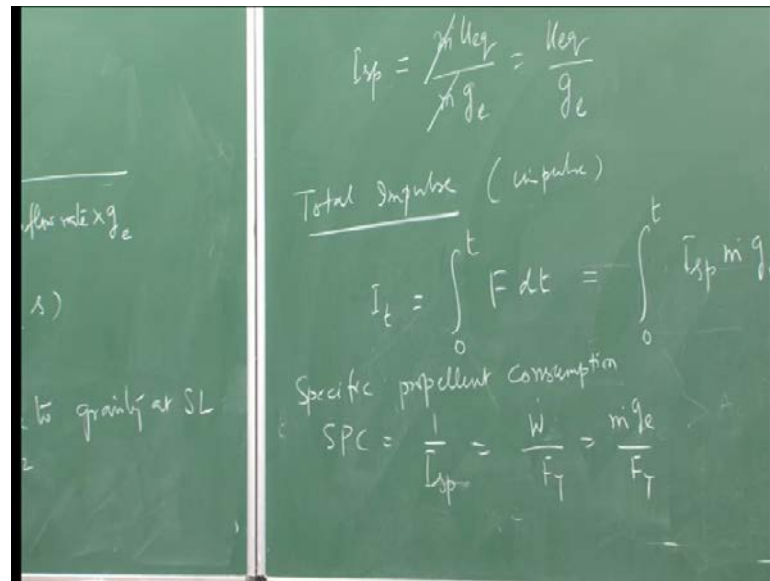 flow rate x g_e
s)
to gravity at SL
2
I_sp = ṁ u_eq / ṁ g_e = u_eq / g_e
Total Impulse (impulse)
I_t = ∫_0^t F dt = ∫_0^t I_sp ṁ g
Specific propellent consumption
SPC = 1 / I_sp = Ẇ / F_T = ṁ g_e / F_T